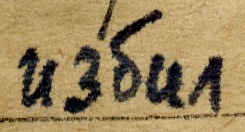 избил